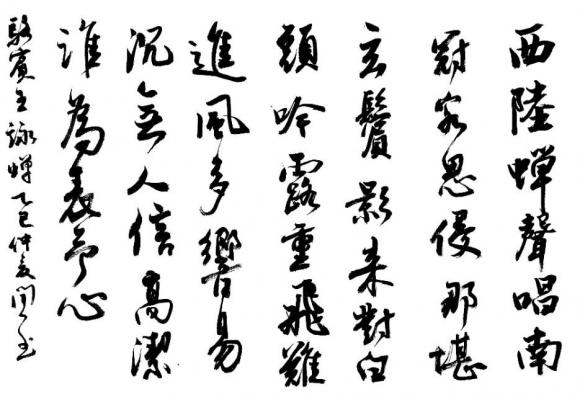 西陸蝉聲唱南
冠客思侵那堪
玄鬢影来對白
頭吟露重飛難
進風多響易
沉無人信高潔
誰為表予心
駱賓王詠蟬乙巳仲夏